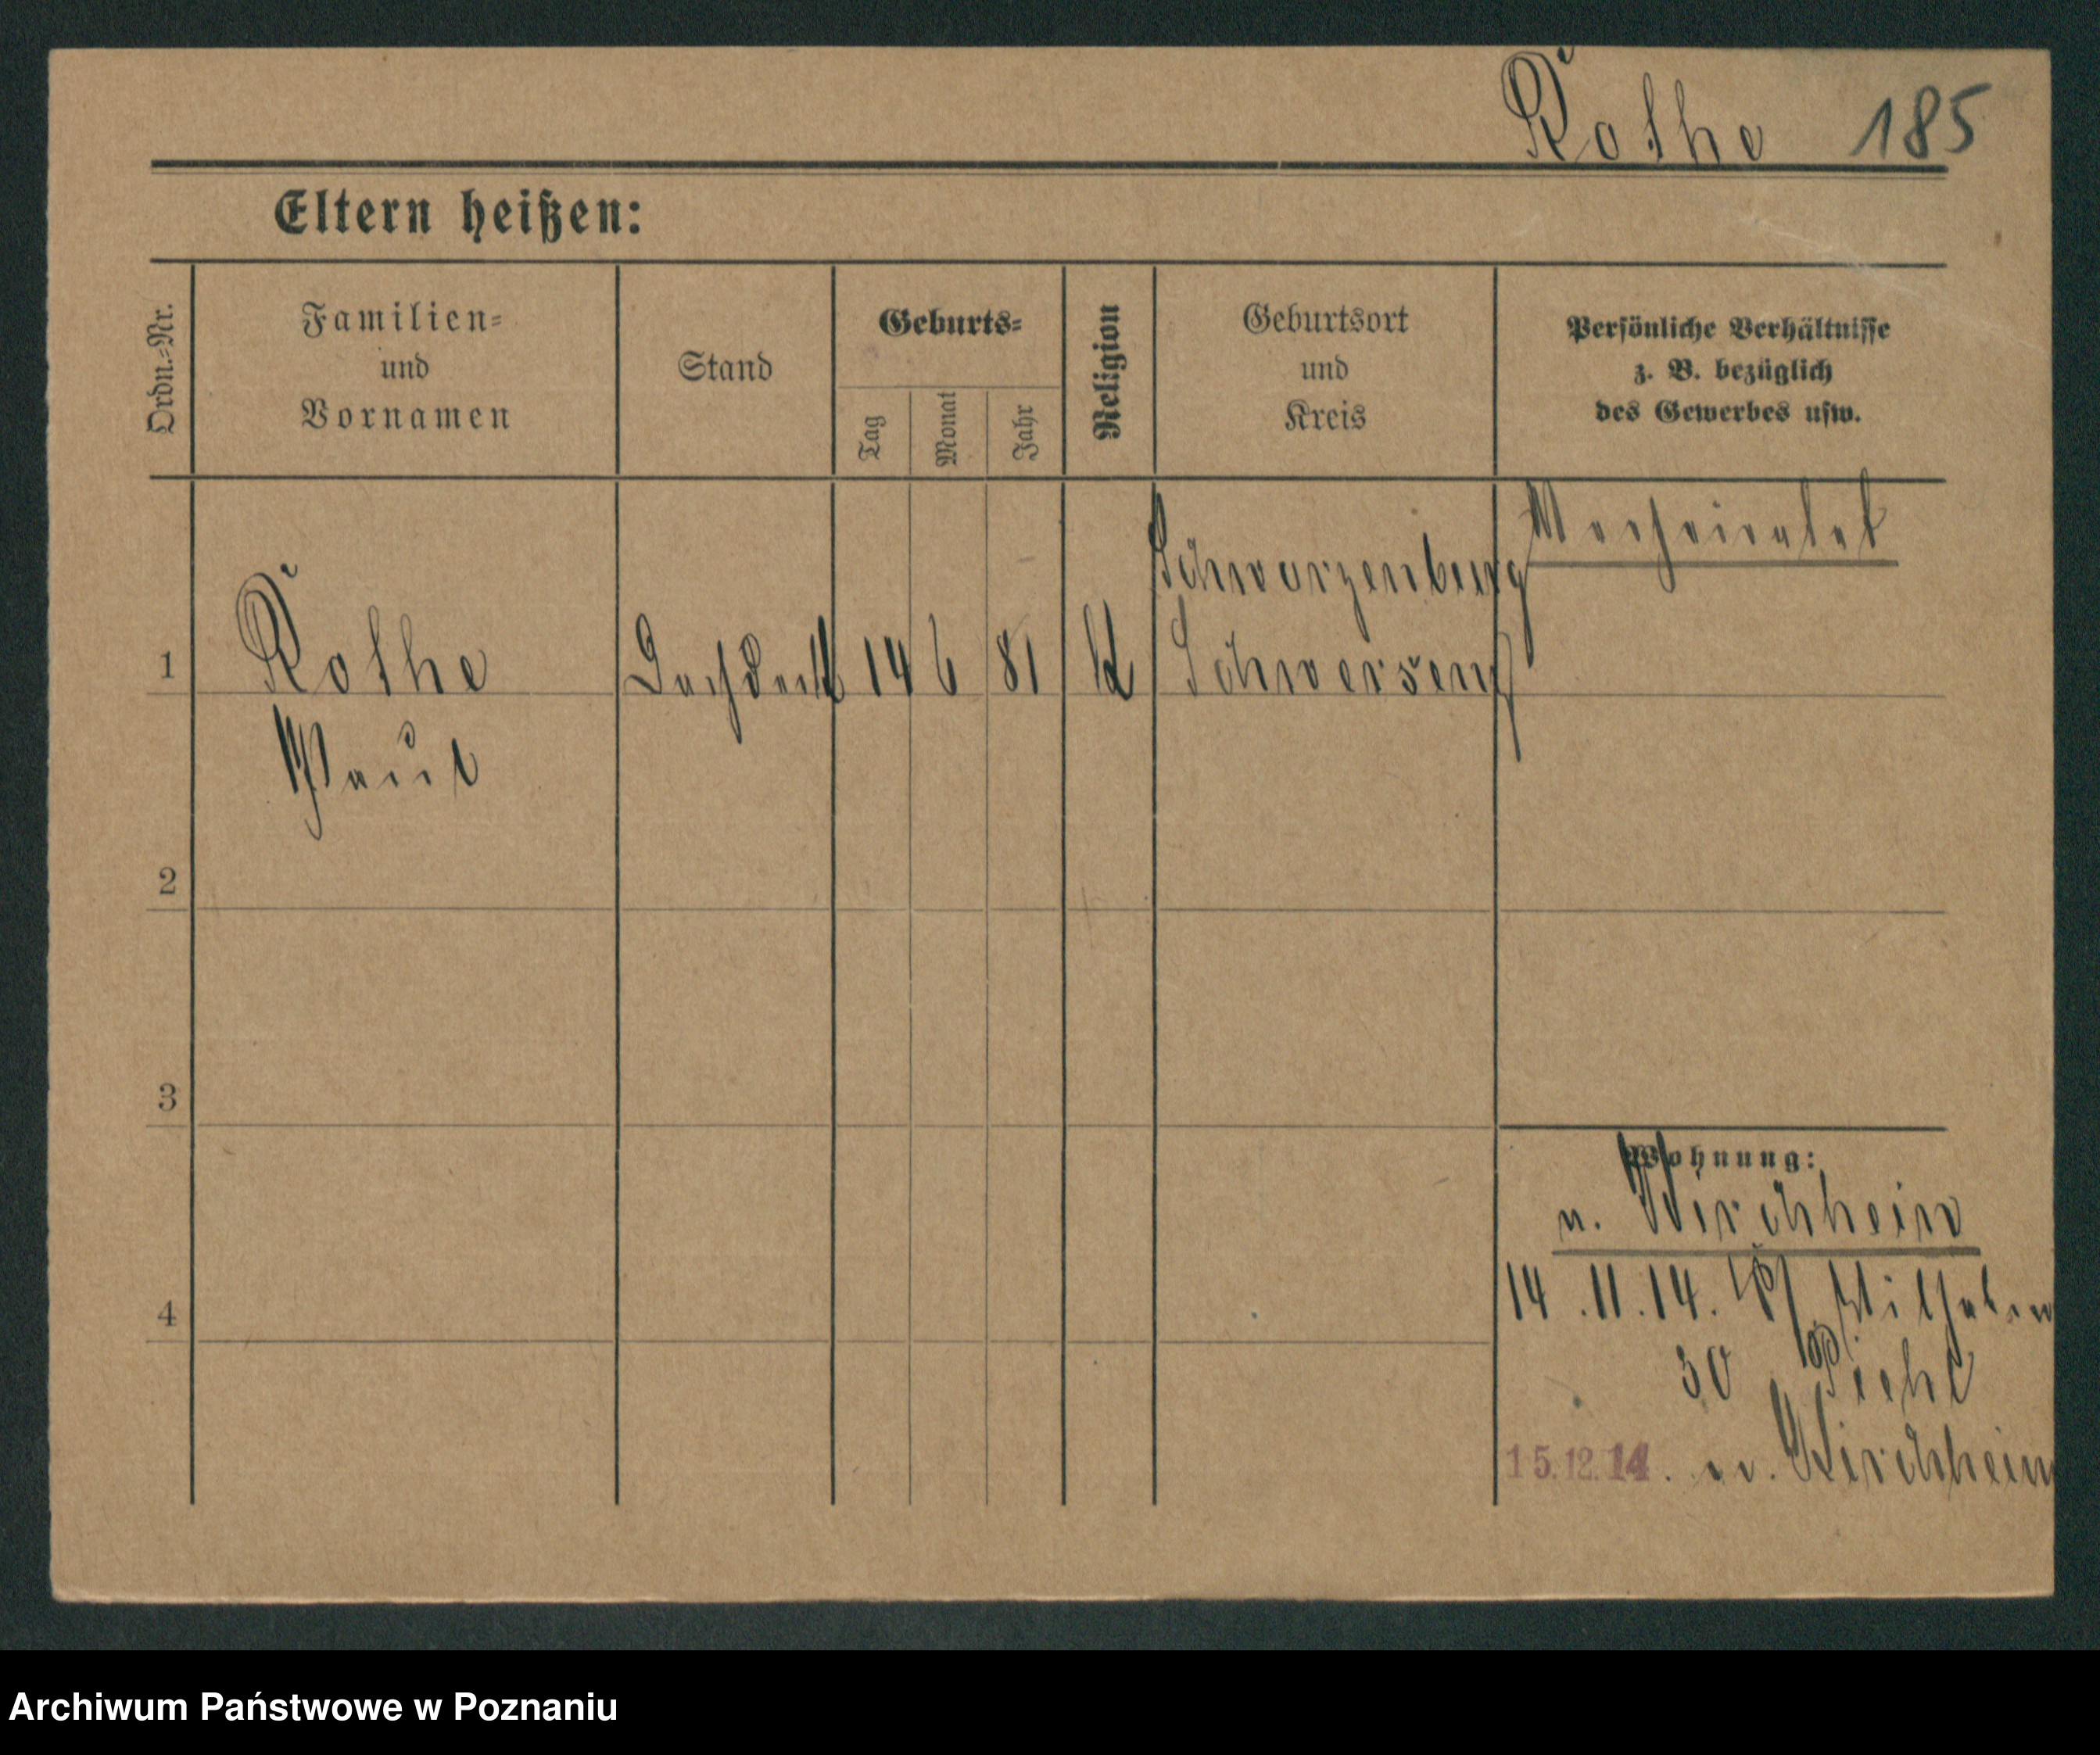 Rothe 185
Eltern heißen:
Ordn.-Nr.
Familien-
und
Vornamen
Stand
Geburts-
Tag
Monat
Jahr
Religion
Geburtsort
und
Kreis
Persönliche Verhältnisse
z. B. bezüglich
des Gewerbes usw.
Verheiratet
Schwarzenburg
1 Rothe 14 6 81 Schwersenz
Paul
2
3
4
Wohnung:
n. Wirchhein
14.11.14. Wilhelm
30 Piehl
15.12.14. n.
Archiwum Państwowe w Poznaniu